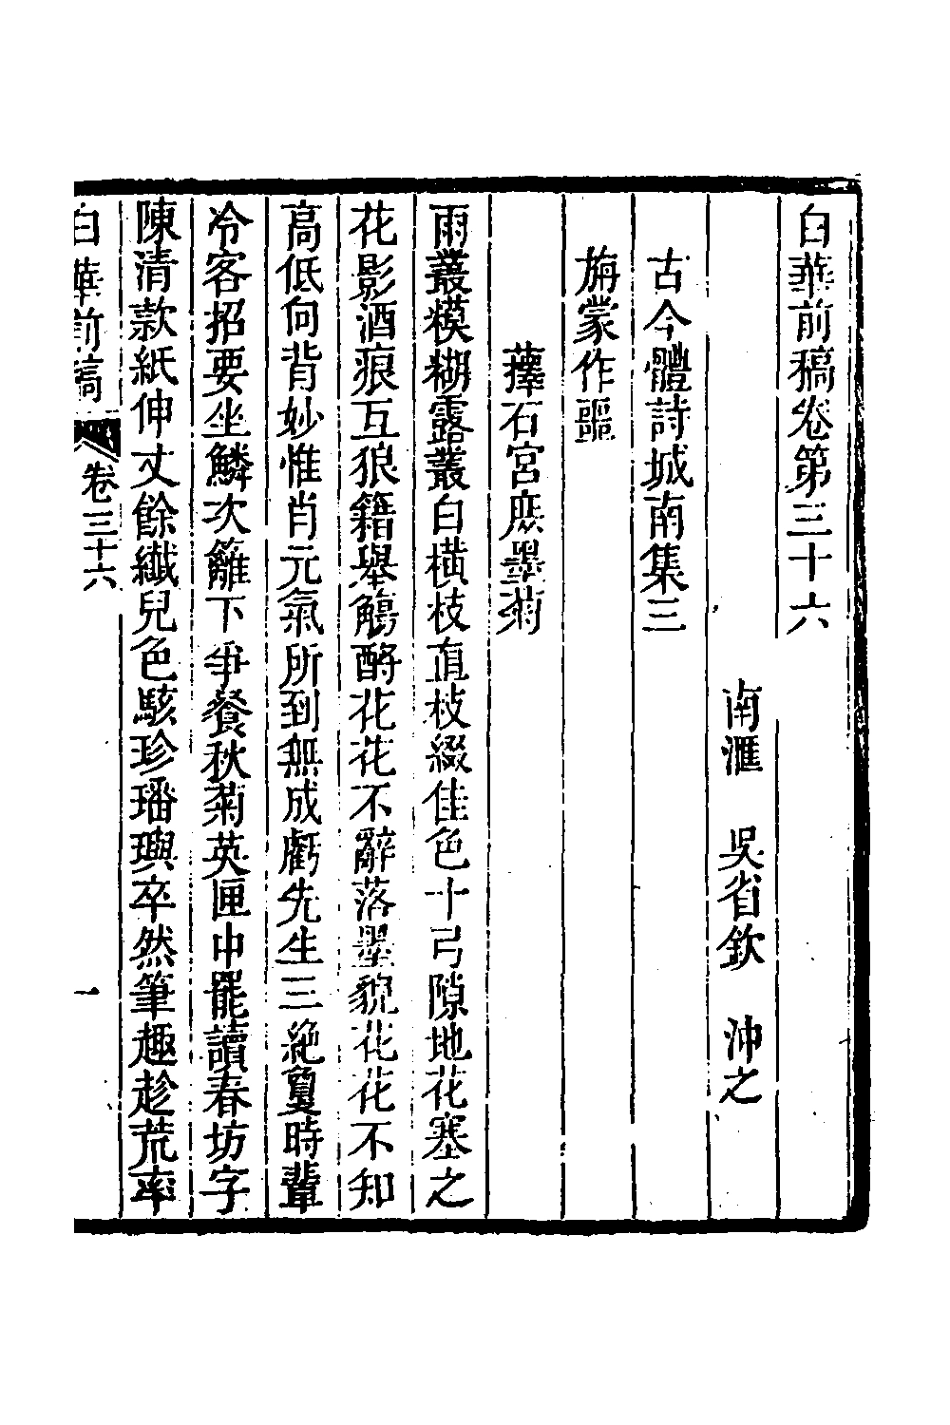 白華前稿卷第三十六
南滙　吳省欽　沖之
古今體詩城南集三
旃蒙作噩
蘀石宮庶墨菊
雨叢模糊露叢白橫枝直枝綴佳色十弓隙地花塞之
花影酒痕互狼籍舉觴酹花花不辭落墨貌花花不知
高低向背妙惟肖元氣所到無成虧先生三絶夐時輩
冷客招要坐鱗次籬下爭餐秋菊英匣中罷讀春坊字
陳清款紙伸丈餘纖兒色駭珍璠璵卒然筆趣趁荒率
白華前稿
卷三十六
一